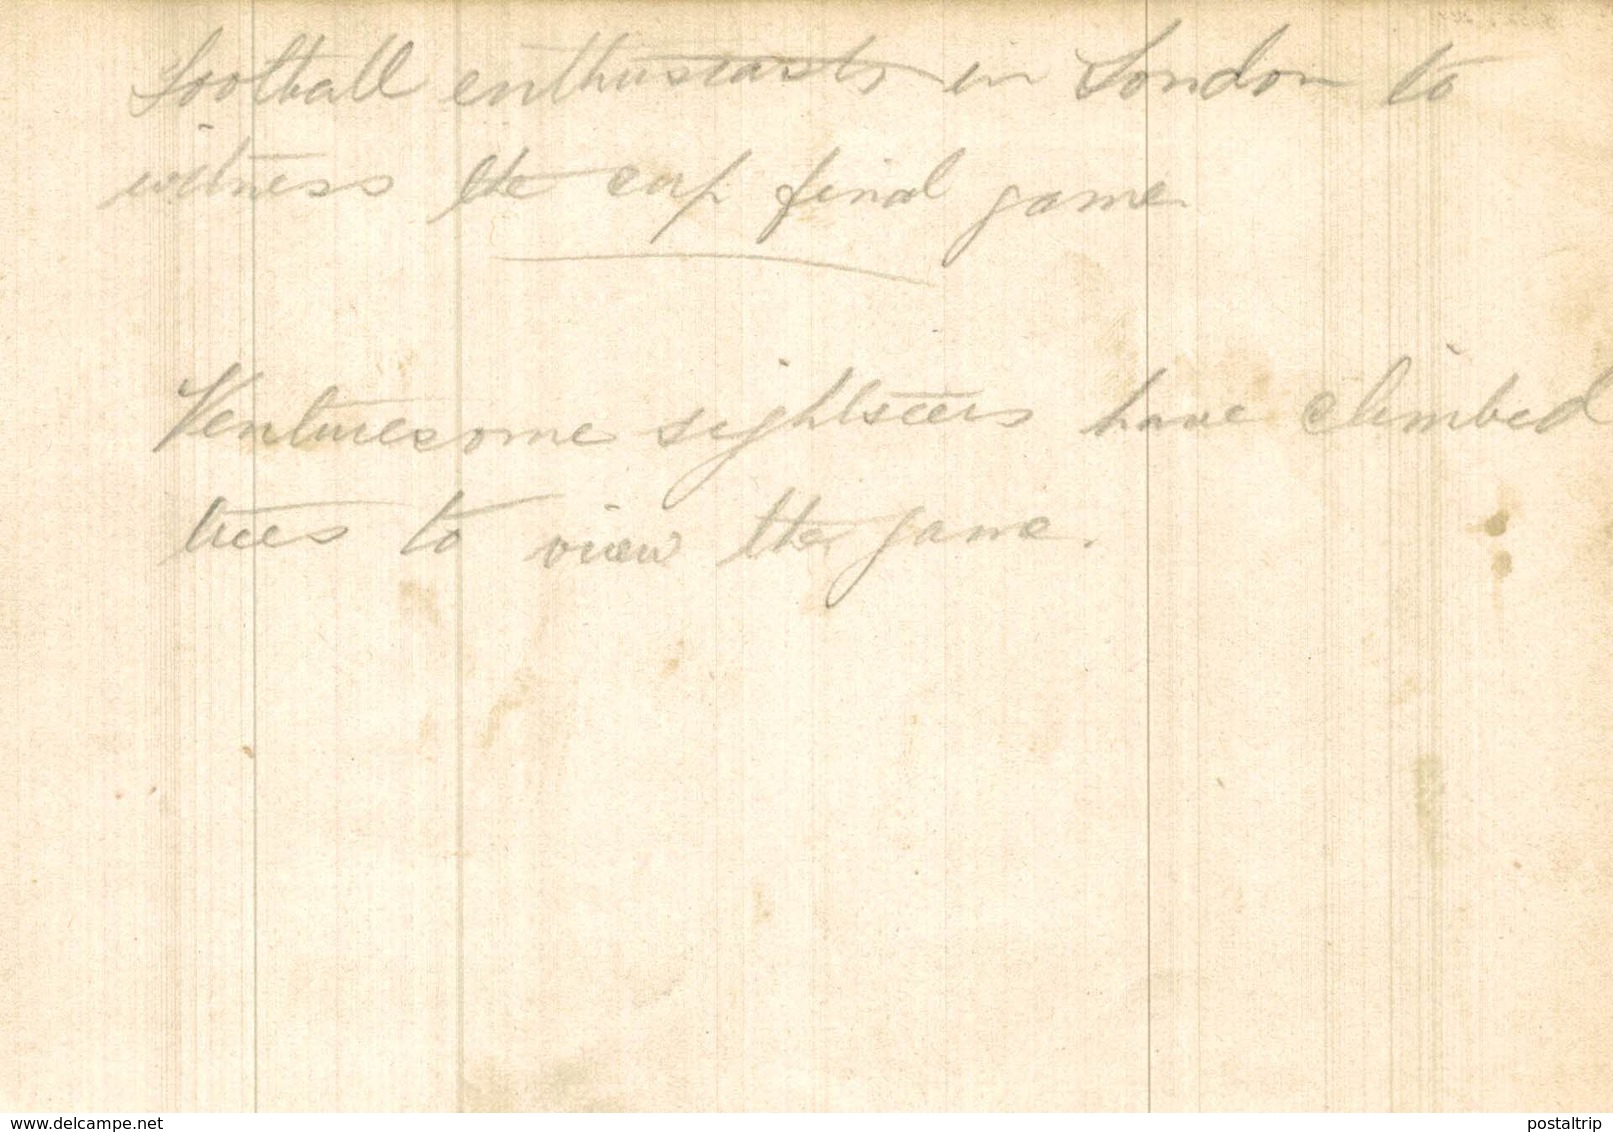 Football enthusiasts in London to
witness the cup final game
Venturesome sightseers have climbed
trees to view the game.
www.delcampe.net
postaltrip